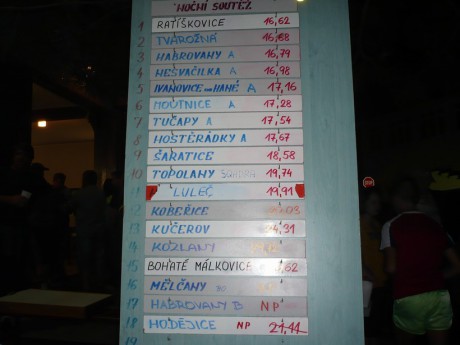 NOČNÍ SOUTĚŽ
1 RATÍŠKOVICE 16,62
2 TVAROŽNÁ 16,68
3 HABROVANY A 16,79
4 NESVAČILKA A 16,98
5 IVANOVICE NA HANÉ A 17,16
6 MOUTNICE A 17,28
7 TUČAPY A 17,54
8 HOSTĚRÁDKY A 17,67
9 ŠARATICE 18,58
10 TOPOLANY 19,74
11 LULEČ 19,91
12 KOBEŘICE
13 KUČEROV 24,31
14 KOZLANY
15 BOHATÉ MÁLKOVICE
16 MĚLČANY
17 HABROVANY B NP
18 HODĚJICE NP 21,44
19
STOP